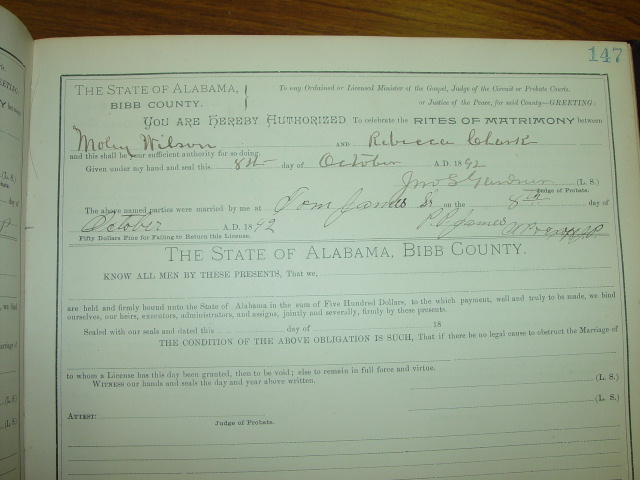 147
The State of Alabama, BIBB COUNTY.
To any Ordained or Licensed Minister of the Gospel, Judge of the Circuit or Probate Courts,
or Justice of the Peace, for said County—GREETING:
You are Hereby Authorized To celebrate the RITES OF MATRIMONY between
Moley Wilson AND Rebecca Clark
and this shall be your sufficient authority for so doing.
Given under my hand and seal this 8th day of October A.D. 1892
Jno S Gardner (L. S.)
Judge of Probate.
The above named parties were married by me at Tom James's on the 8th day of
October A.D. 1892 P. P. James
Fifty Dollars Fine for Failing to Return this License.
The State of Alabama, Bibb County.
KNOW ALL MEN BY THESE PRESENTS, That we,
are held and firmly bound unto the State of Alabama in the sum of Five Hundred Dollars, to the which payment, well and truly to be made, we bind
ourselves, our heirs, executors, administrators, and assigns, jointly and severally, firmly by these presents.
Sealed with our seals and dated this day of 18
THE CONDITION OF THE ABOVE OBLIGATION IS SUCH, That if there be no legal cause to obstruct the Marriage of
to whom a License has this day been granted, then to be void; else to remain in full force and virtue.
WITNESS our hands and seals the day and year above written.
(L. S.)
(L. S.)
ATTEST:
Judge of Probate.